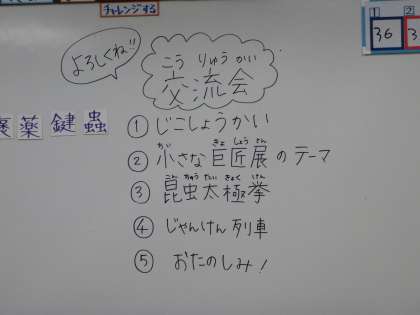 チャレンジする
① ②
36 3
よろしくね!!
こう りゅう かい
交流会
薬 鍵 蟲
① じこしょうかい
② 小さな巨匠展のテーマ
③ 昆虫太極拳
④ じゃんけん列車
⑤ おたのしみ!